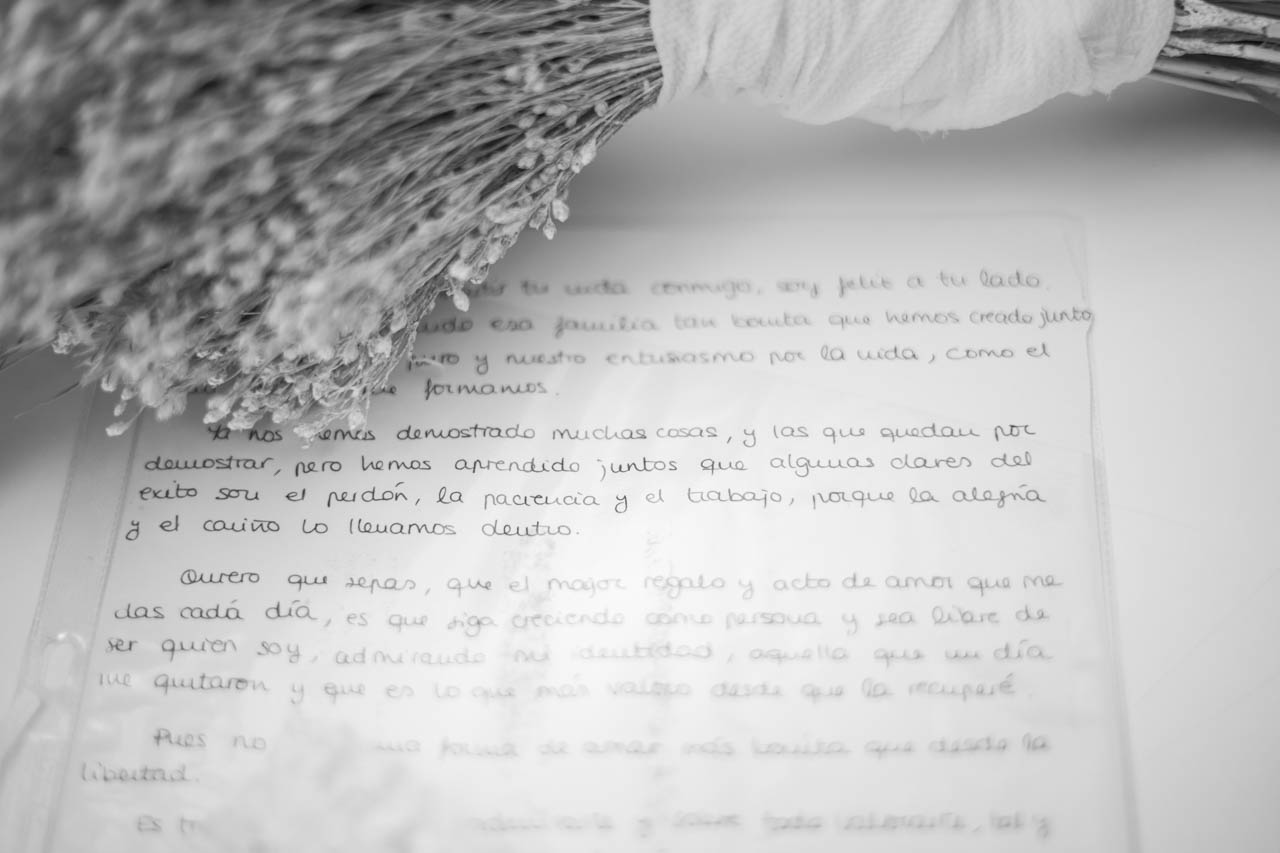 tu vida conmigo, soy feliz a tu lado.
esa familia tan bonita que hemos creado junto
y nuestro entusiasmo por la vida, como el
formamos.
Ya nos hemos demostrado muchas cosas, y las que quedan por
demostrar, pero hemos aprendido juntos que algunas claves del
exito son el perdón, la paciencia y el trabajo, porque la alegría
y el cariño lo llevamos dentro.
Quiero que sepas, que el mejor regalo y acto de amor que me
das cadá día, es que siga creciendo como persona y sea libre de
ser quien soy, admirando mi identidad, aquella que un día
me quitaron y que es lo que más valoro desde que la recuperé.
Pues no forma de amar más bonita que desde la
libertad.
Es y sobre todo